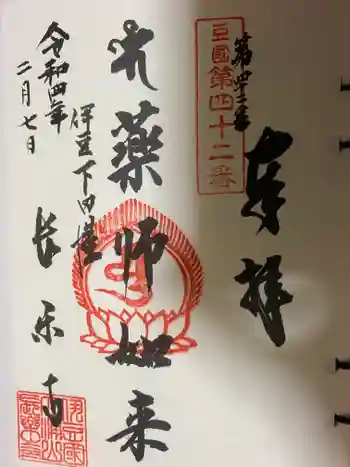 豆國第四十二番
第四十二番
奉拝
薬師如来
伊豆下田港
長楽寺
令和四年
二月七日